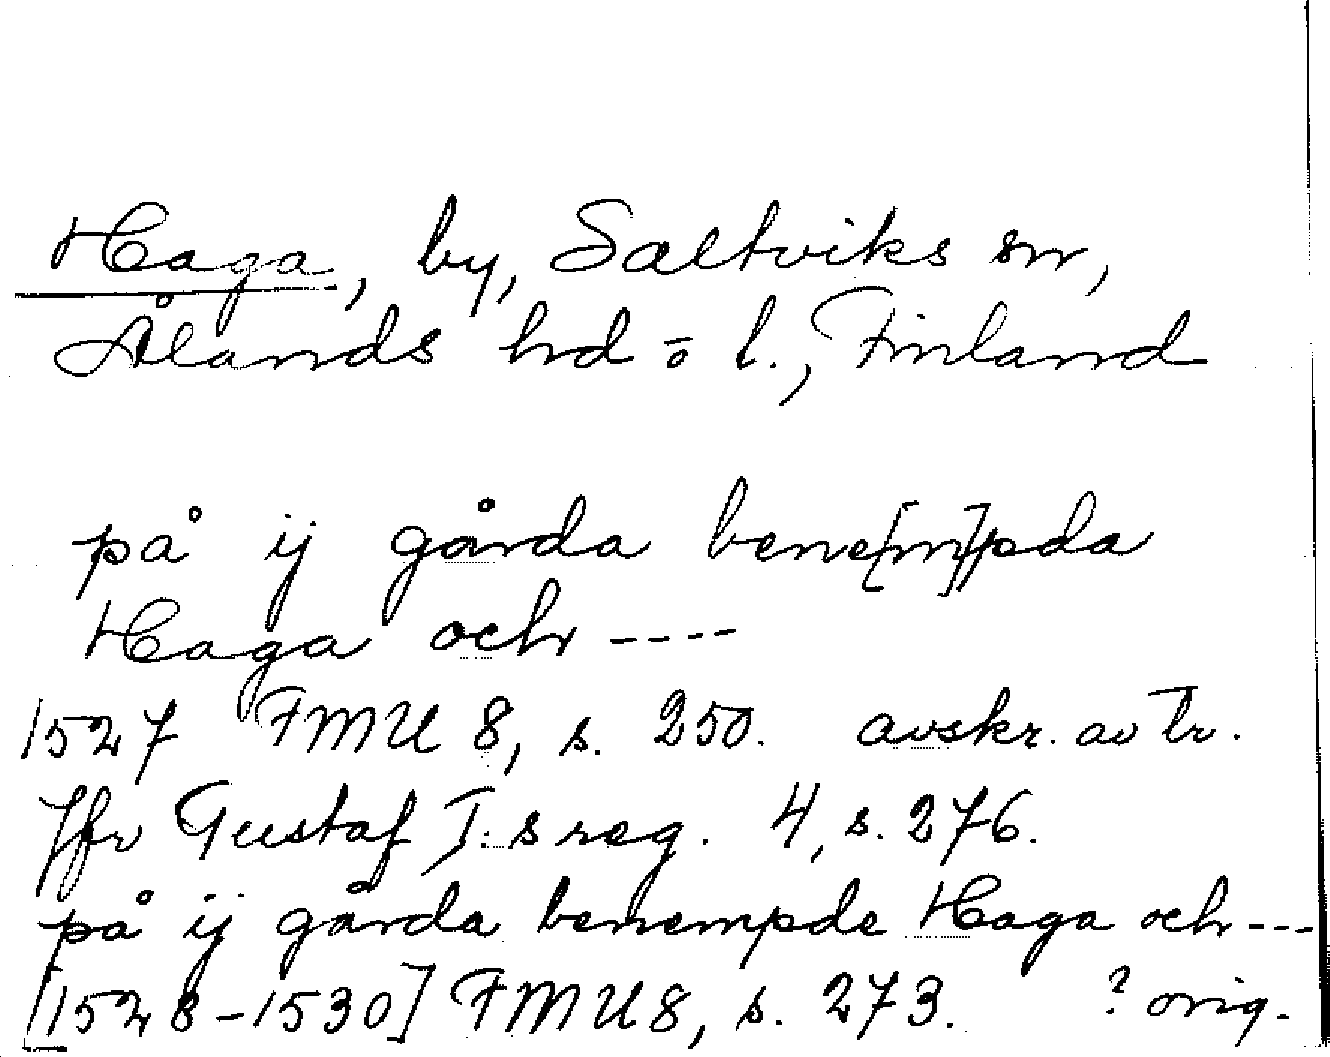 Haga, by, Saltviks sn,
Ålands hrd o l., Finland
på ij gårda bene[m]pda
Haga och ----
1527 FMU 8, s. 250. avskr. av tr.
Jfr Gustaf I:s reg. 4, s. 276.
på ij gårda benempde Haga och ---
[1528-1530] FMU 8, s. 273. ? orig.